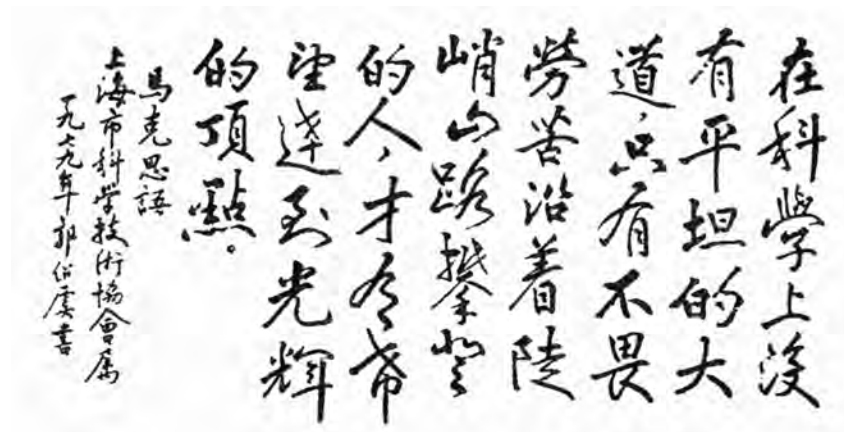 在科學上沒
有平坦的大
道，只有不畏
勞苦沿着陡
峭山路攀登
的人，才有希
望達到光輝
的頂點。
馬克思語
上海市科學技術協會屬
一九七九年郭紹虞書